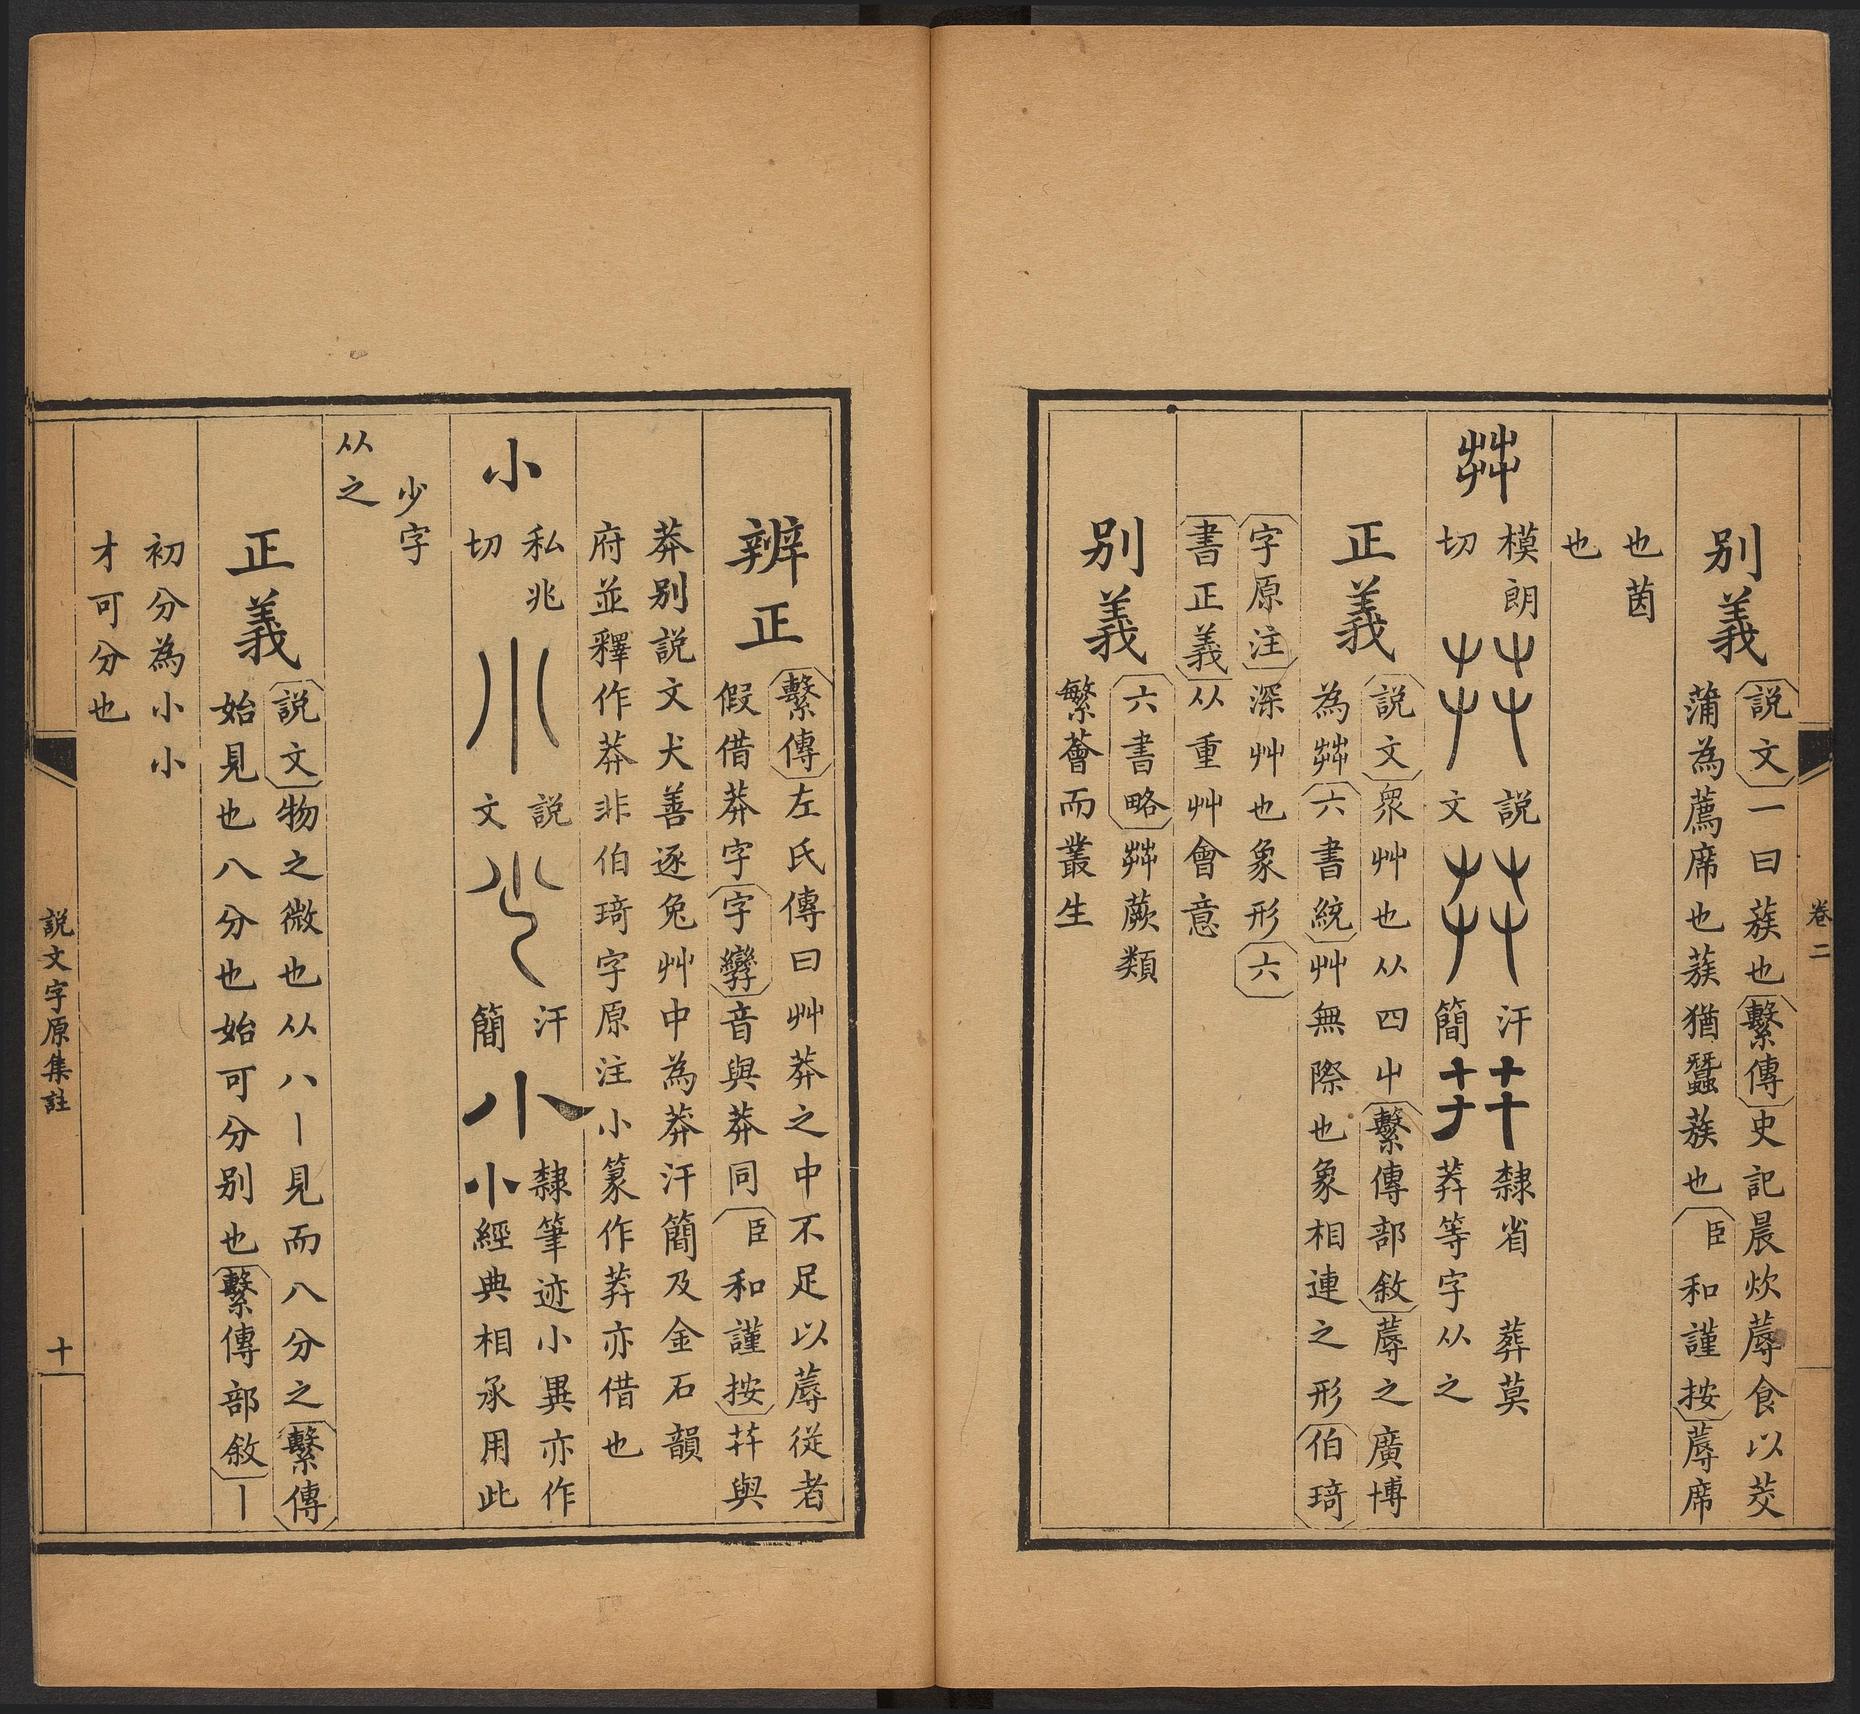 卷二
別義
説文一曰蔟也繫傳史記晨炊蓐食以茭
蒲為薦席也蔟猶蠶蔟也臣和謹按蓐席
也茵
也
茻
模朗
切
説
文
汗
簡
隸省 葬莫
莽等字从之
正義
説文眾艸也从四屮繫傳部敘蓐之廣博
為茻六書統艸無際也象相連之形伯琦
字原注深艸也象形六
書正義从重艸會意
別義
六書略茻蕨類
繁薈而叢生
辨正
繫傳左氏傳曰艸莽之中不足以蓐從者
假借莽字字孿音與莽同臣和謹按茻與
莽別説文犬善逐兔艸中為莽汗簡及金石韻
府並釋作莽非伯琦字原注小篆作莽亦借也
小
私兆
切
説
文
汗
簡
小
隸筆迹小異亦作
小經典相承用此
少字
从之
正義
説文物之微也从八丨見而八分之繫傳
始見也八分也始可分別也繫傳部敘丨
初分為小小
才可分也
説文字原集註
十